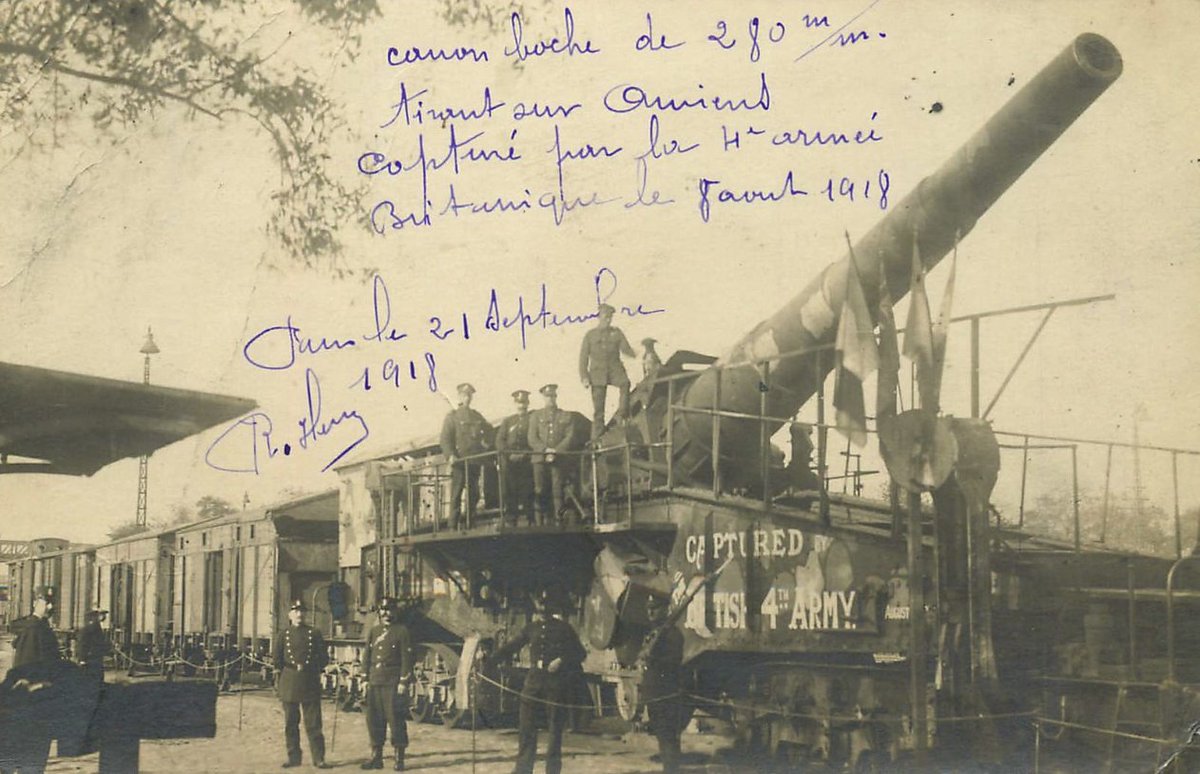 canon boche de 280 m/m.
tirant sur Amiens
Capturé par la 4e armée
Britanique le 8 aout 1918
Paris le 21 Septembre
1918
R. Henry
CAPTURED BY
BRITISH 4TH ARMY.
AUGUST